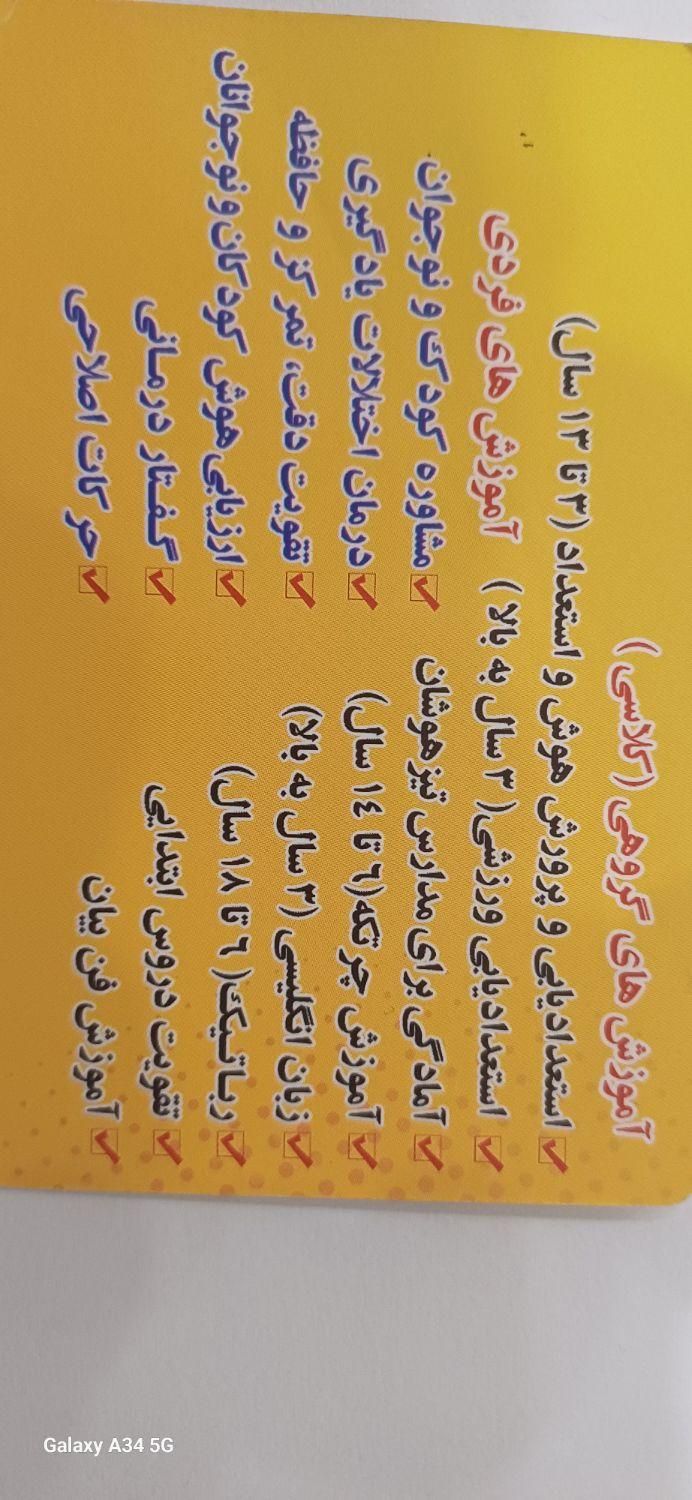 آموزش های گروهی (کلاسی)
استعدادیابی و پرورش هوش و استعداد (۳ تا ۱۳ سال)
استعدادیابی ورزشی( ۳ سال به بالا )
آمادگی برای مدارس تیزهوشان
آموزش چرتکه(٦ تا ١٤ سال)
زبان انگلیسی (۳ سال به بالا)
رباتیک( ٦ تا ۱۸ سال)
تقویت دروس ابتدایی
آموزش فن بیان
آموزش های فردی
مشاوره کودک و نوجوان
درمان اختلالات یادگیری
تقویت دقت، تمرکز و حافظه
ارزیابی هوش کودکان و نوجوانان
گفتار درمانی
حرکات اصلاحی
Galaxy A34 5G